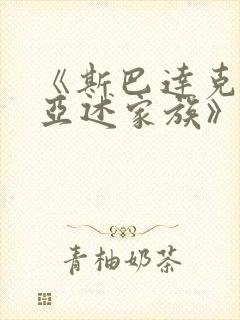 《斯巴达克
亚述家族》
青柚奶茶